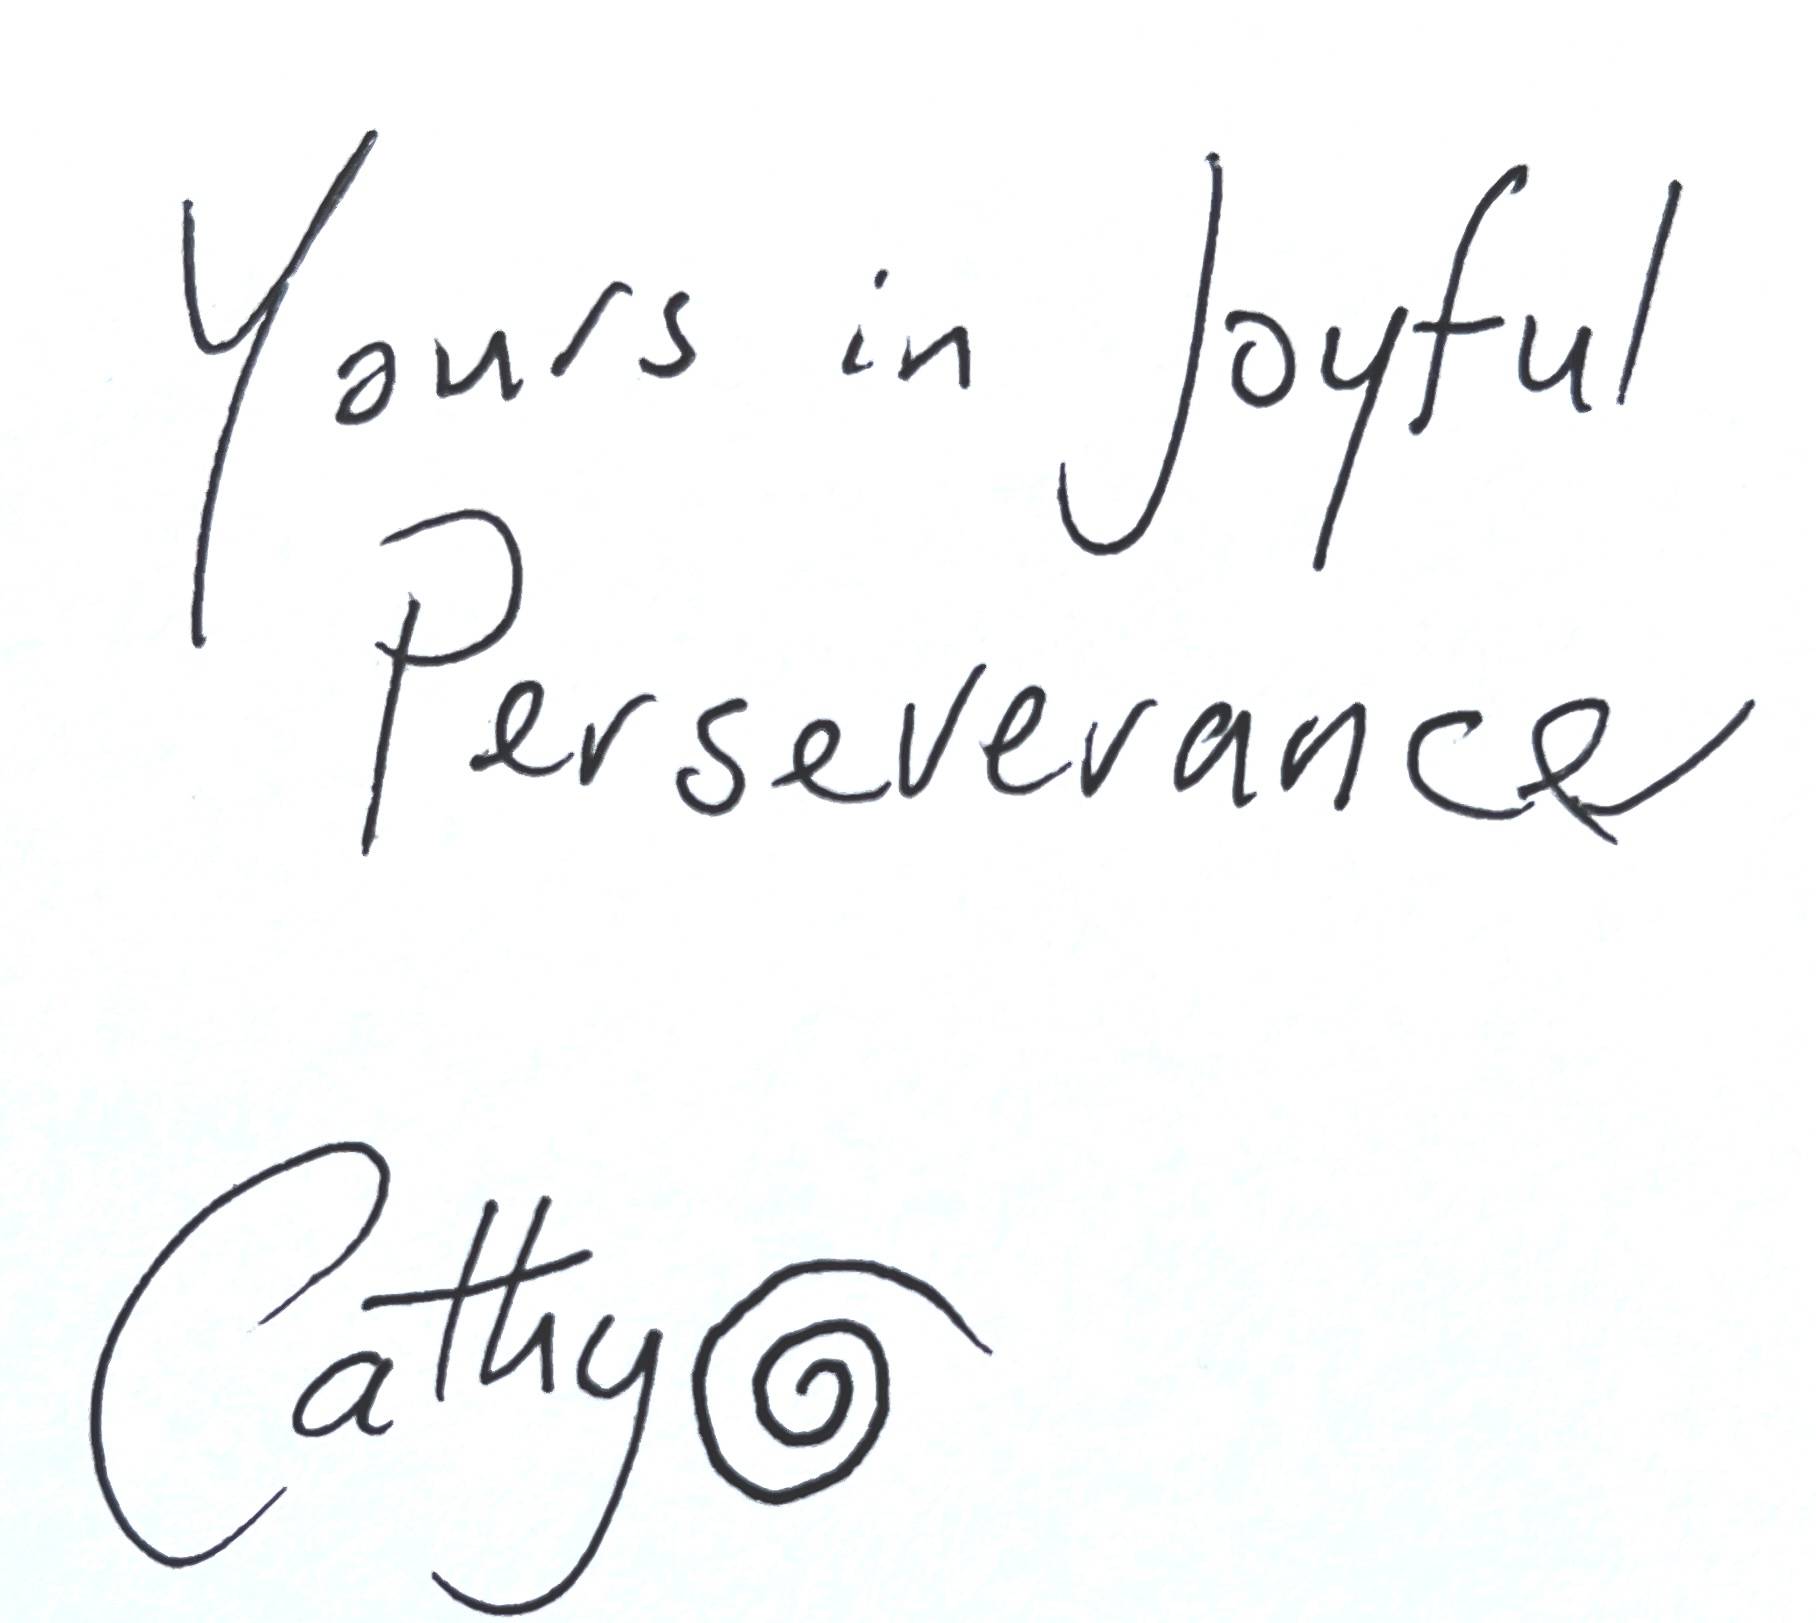 Yours in Joyful
Perseverance
Cathy